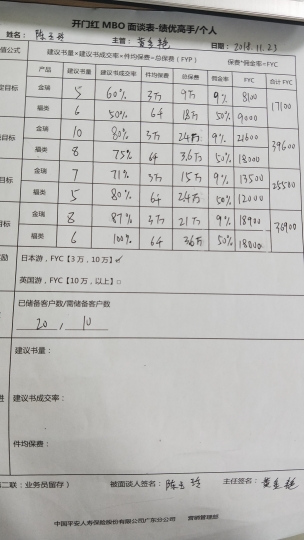 开门红 MBO 面谈表-绩优高手/个人
姓名: 陈玉玲 主管: 黄金艳 日期: 2018.11.23
值公式 建议书量×建议书成交率×件均保费=总保费(FYP) 保费*佣金率=FYC
产品 建议书量 建议书成交率 件均保费 总保费 佣金率 FYC 合计FYC
定目标 金瑞 5 60% 3万 9万 9% 8100 17100
福类 6 50% 6千 1.8万 50% 9000
目标 金瑞 10 80% 3万 24万 9% 21600 39600
福类 8 75% 6千 3.6万 50% 18000
目标 金瑞 7 71% 3万 15万 9% 13500 25500
福类 5 80% 6千 2.4万 50% 12000
目标 金瑞 8 87% 3万 21万 9% 18900 36900
福类 6 100% 6千 3.6万 50% 18000
励 日本游,FYC【3 万,10 万】✓
英国游,FYC【10 万,以上】□
已储备客户数/需储备客户数
20 , 10
建议书量:
建议书成交率:
进
件均保费:
第二联:业务员留存) 被面谈人签名: 陈玉玲 主任签名: 黄金艳
中国平安人寿保险股份有限公司广东分公司 营销管理部